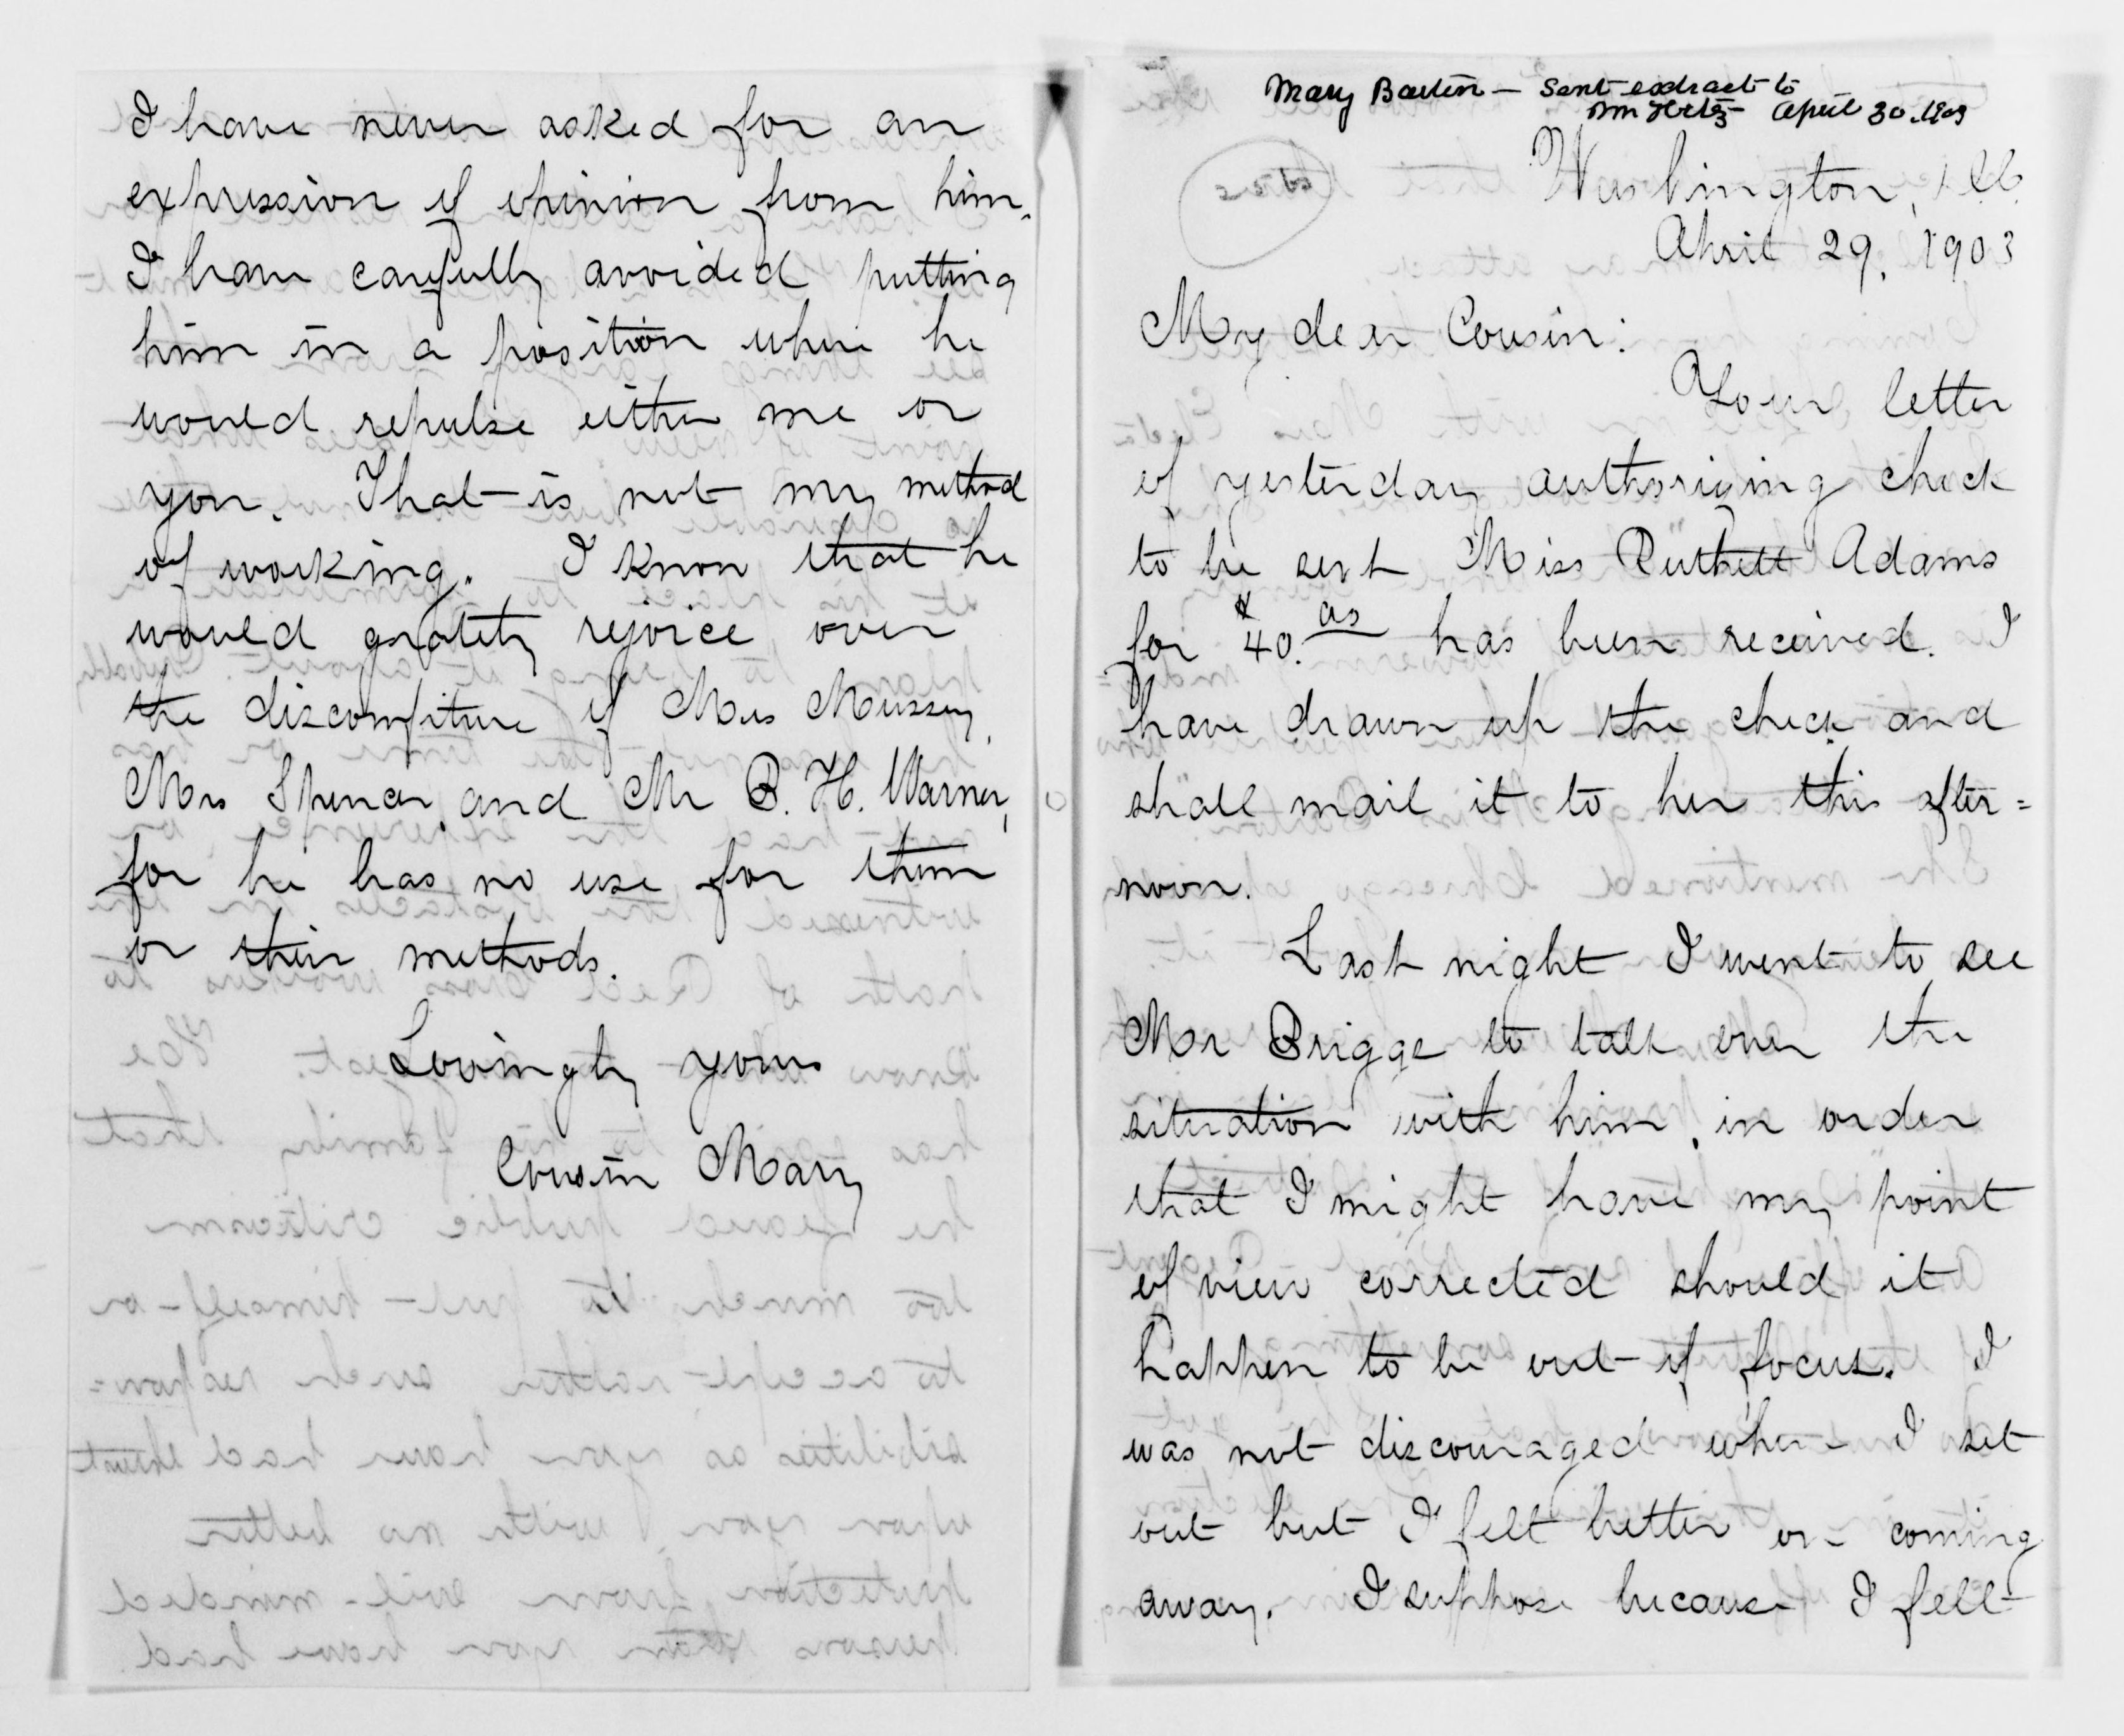 I have never asked for an
expression of opinion from him.
I have carefully avoided putting
him in a position where he
would repulse either me or
you. That is not my method
of working. I know that he
would greatly rejoice over
the discomfiture of Mrs Mussey,
Mrs Spencer, and Mr B. H. Warner,
for he has no use for them
or their methods.
Lovingly yours
Cousin Mary
Mary Barton – Sent extract to
April 30. 1903
Washington, D.C.
April 29, 1903
My dear Cousin:
Your letter
of yesterday authorizing check
to be sent Miss Adams
for $40. has been received. I
have drawn up the check and
shall mail it to her this after=
noon.
Last night I went to see
Mr Briggs to talk over the
situation with him, in order
that I might have my point
of view corrected should it
happen to be out of focus. I
was not discouraged when I set
out but I felt better on coming
away. I suppose because I felt